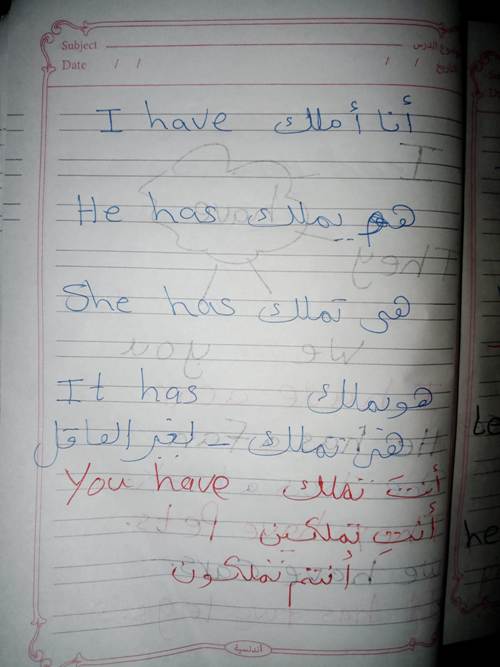 Subject موضوع الدرس
Date / / / / التاريخ
I have أنا أملك
He has هو يملك
She has هي تملك
It has هو يملك
هي تملك - لغير العاقل
You have أنتَ تملك
أنتِ تملكين
أنتم تملكون
أندلسية